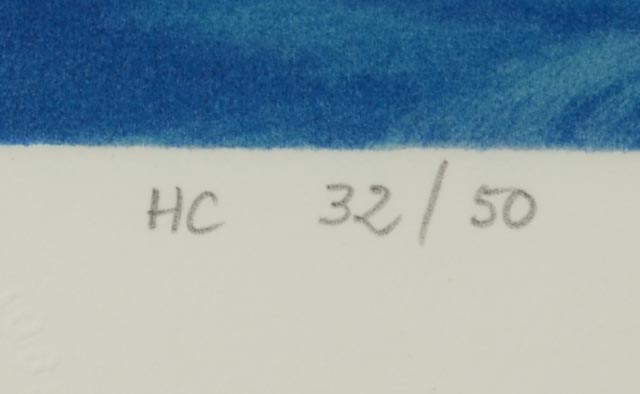 HC 32/50